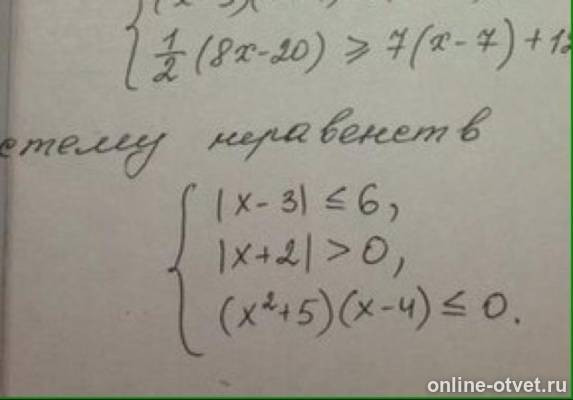 ½(8x-20) ⩾ 7(x-7)+12
стему неравенств
|x-3| ≤ 6,
|x+2| > 0,
(x²+5)(x-4) ≤ 0.
online-otvet.ru